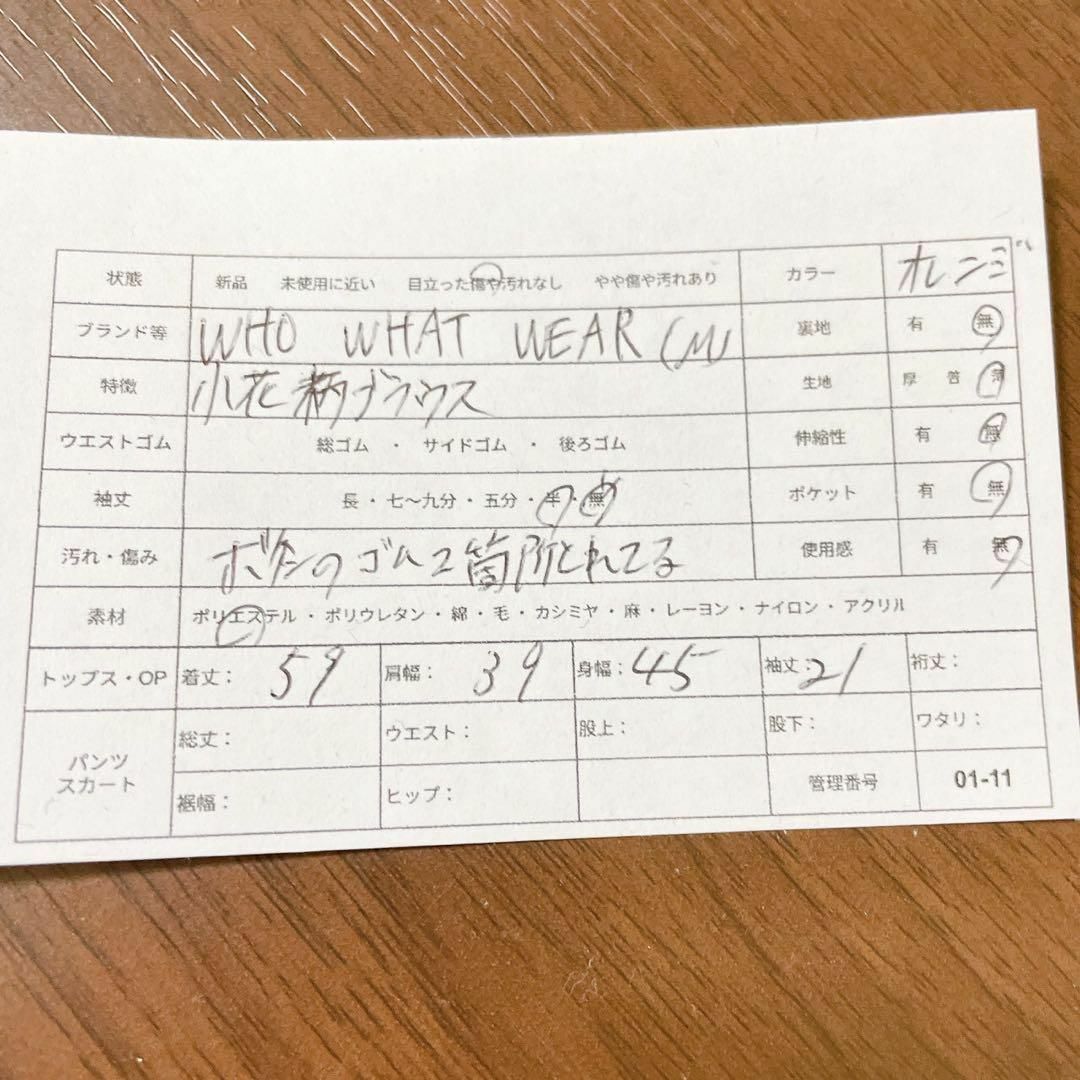 状態 新品 未使用に近い 目立った傷や汚れなし やや傷や汚れあり カラー オレンジ
ブランド等 WHO WHAT WEAR (M 裏地 有 無
特徴 小花柄ブラウス 生地 厚 普 薄
ウエストゴム 総ゴム ・ サイドゴム ・ 後ろゴム 伸縮性 有 無
袖丈 長・七〜九分・五分・半・無 ポケット 有 無
汚れ・傷み ボタンのゴム2箇所とれてる 使用感 有 無
素材 ポリエステル・ポリウレタン・綿・毛・カシミヤ・麻・レーヨン・ナイロン・アクリル
トップス・OP 着丈：59 肩幅：39 身幅：45 袖丈：21 裄丈：
パンツ スカート 総丈： ウエスト： 股上： 股下： ワタリ：
裾幅： ヒップ： 管理番号 01-11